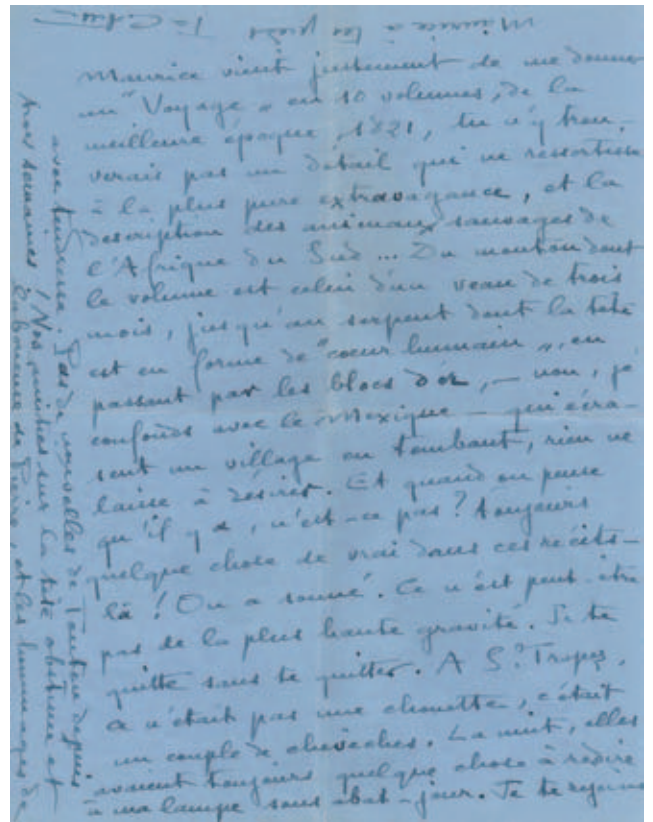 Maurice vient justement de me donner
un "Voyage" en 10 volumes, de la
meilleure époque, 1821, tu n'y trou-
verais pas un détail qui ne ressortisse
à la plus pure extravagance, et la
description des animaux sauvages de
l'Afrique du Sud... Du mouton dont
le volume est celui d'un veau de trois
mois, jusqu'au serpent dont la tête
est en forme de "coeur humain", en
passant par les blocs d'or, – non, je
confonds avec le Mexique – qui écra-
sent un village en tombant, rien ne
laisse à désirer. Et quand on pense
qu'il y a, n'est-ce pas? toujours
quelque chose de vrai dans ces récits-
là ! On a sonné. Ce n'est peut-être
pas de la plus haute gravité. Je te
quitte sans te quitter. A St Tropez,
ce n'était pas une chouette, c'était
un couple de chevêches. La nuit, elles
avaient toujours quelque chose à redire
à ma lampe sans abat-jour. Je te
avec tendresse. Pas de nouvelles de depuis
trois semaines ! Nos amitiés sur la tête obstinée et
laborieuse de Pierre, et les hommages de
Maurice à tes pieds Ta Colette